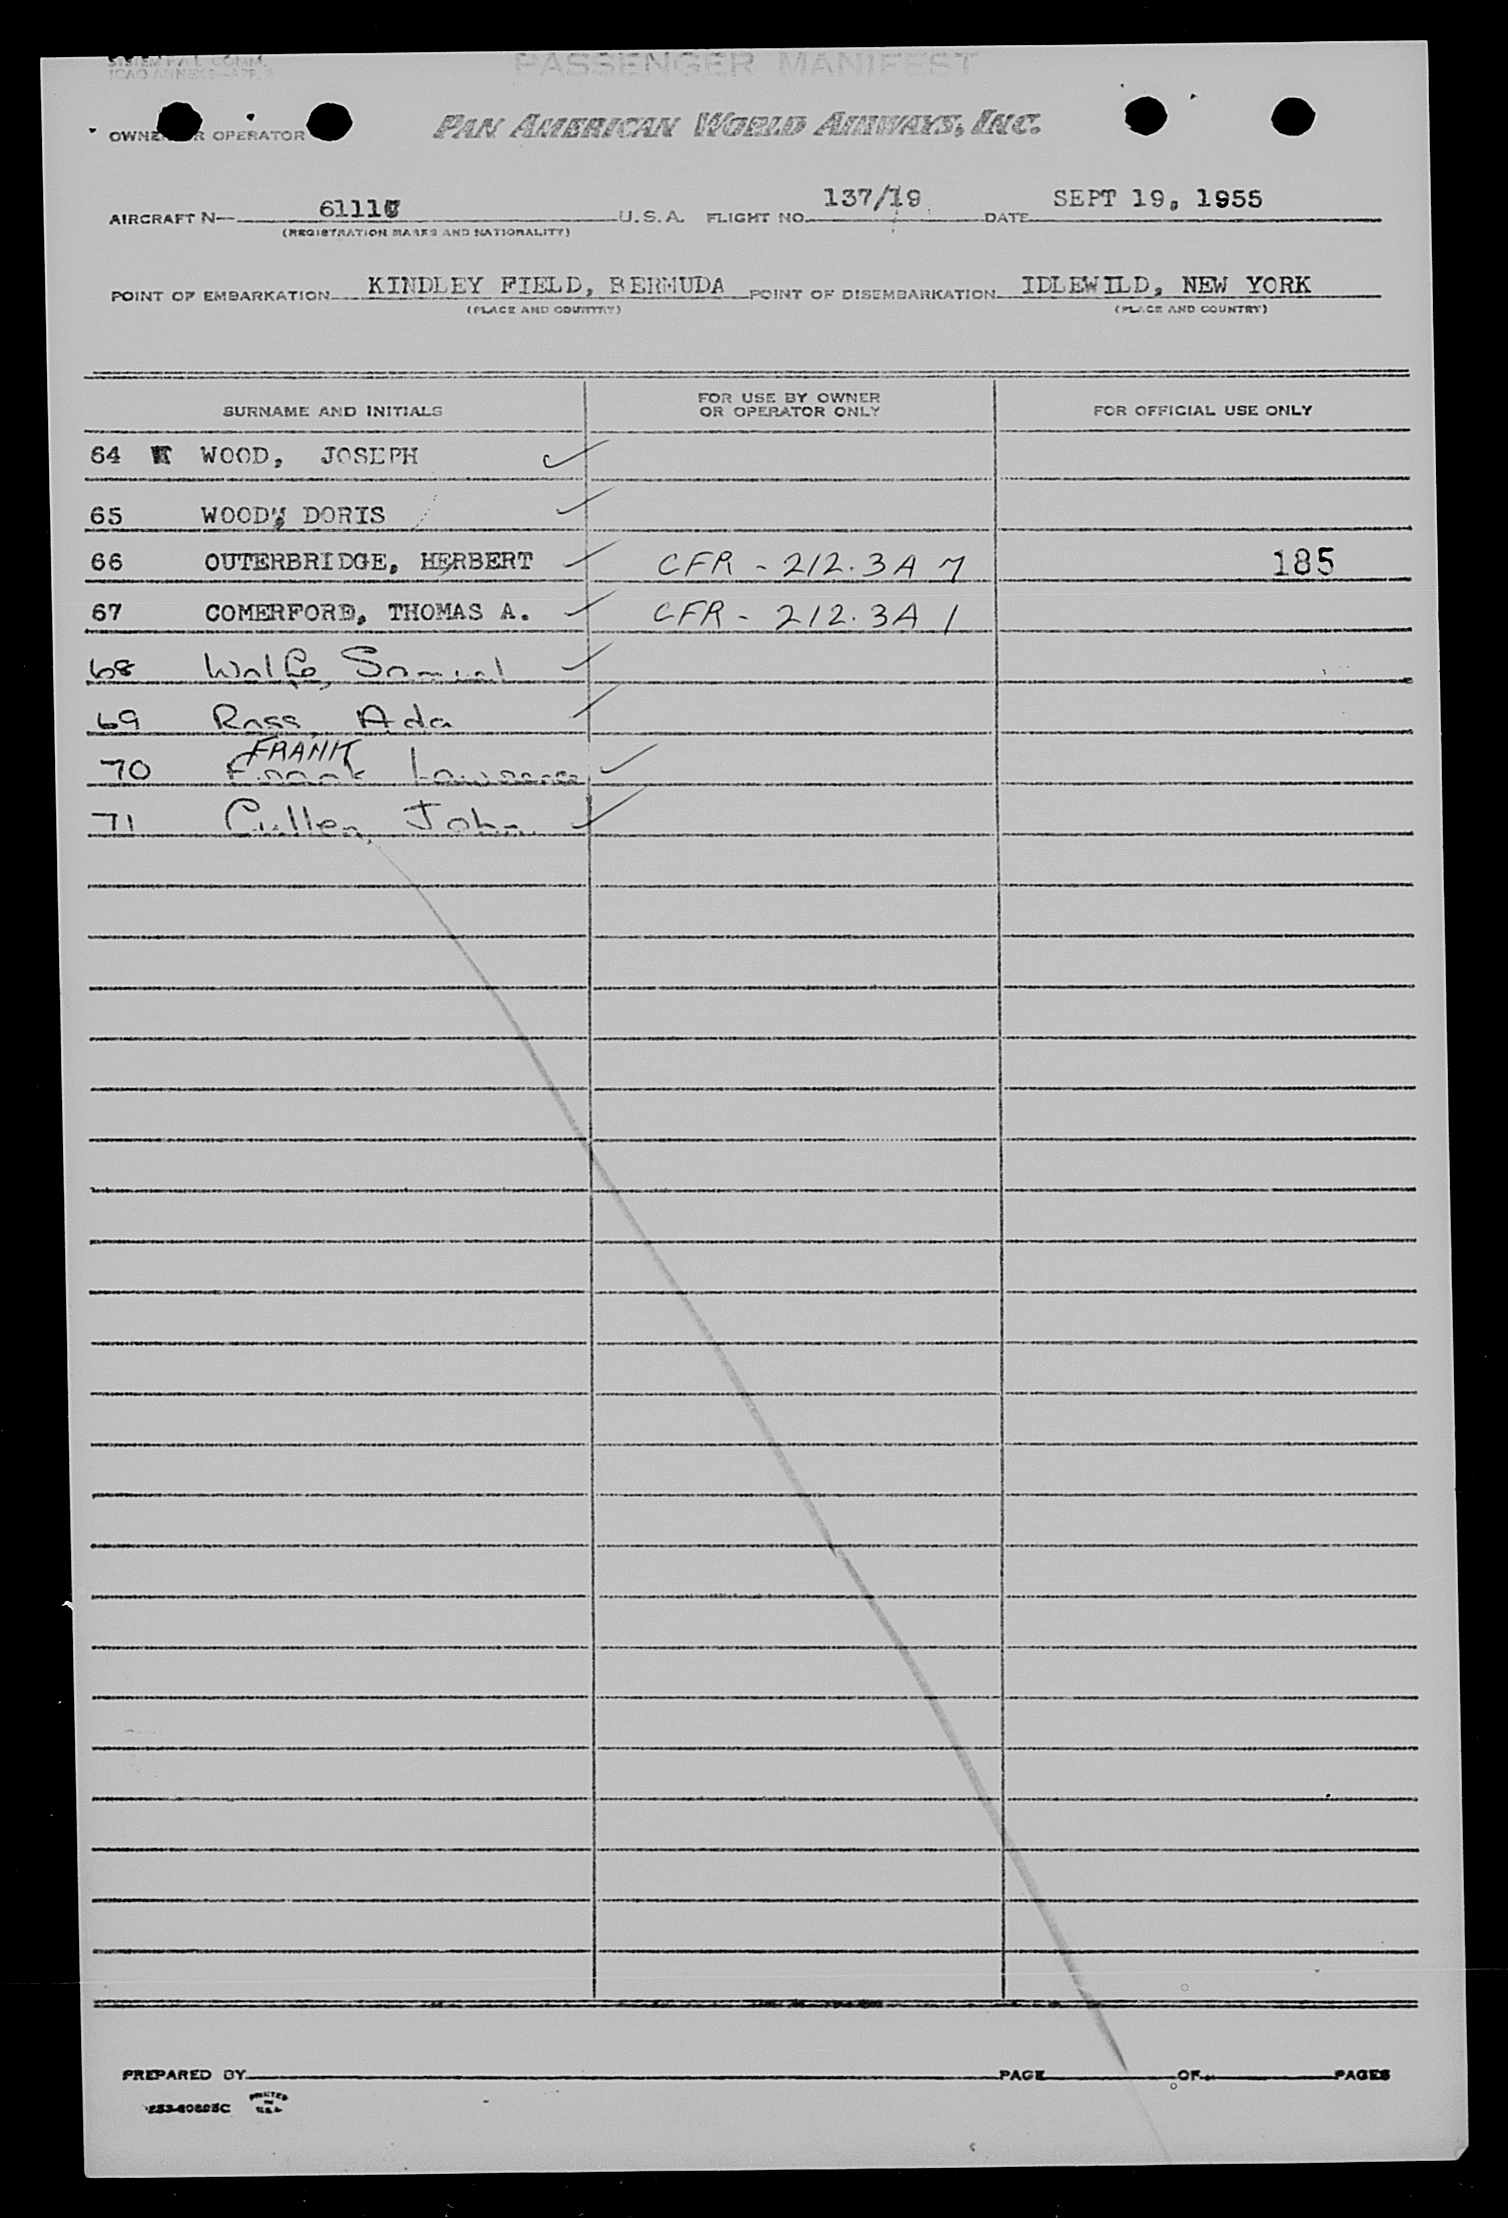 SYSTEM
PASSENGER MANIFEST
OWNER OR OPERATOR PAN AMERICAN WORLD AIRWAYS, INC.
AIRCRAFT N— 6111 U.S.A. FLIGHT NO. 137/19 DATE SEPT 19, 1955
(REGISTRATION MARKS AND NATIONALITY)
POINT OF EMBARKATION KINDLEY FIELD, BERMUDA POINT OF DISEMBARKATION IDLEWILD, NEW YORK
(PLACE AND COUNTRY) (PLACE AND COUNTRY)
SURNAME AND INITIALS FOR USE BY OWNER OR OPERATOR ONLY FOR OFFICIAL USE ONLY
64 WOOD, JOSEPH
65 WOOD, DORIS
66 OUTERBRIDGE, HERBERT CFR - 212.3A 7 185
67 COMERFORD, THOMAS A. CFR - 212.3A 1
68 Wolfe, Samuel
69 Ross, Ada
FRANK
70 Frank Lawrence
71 Cullen, John
PREPARED BY PAGE OF PAGES
PRINTED IN U.S.A.